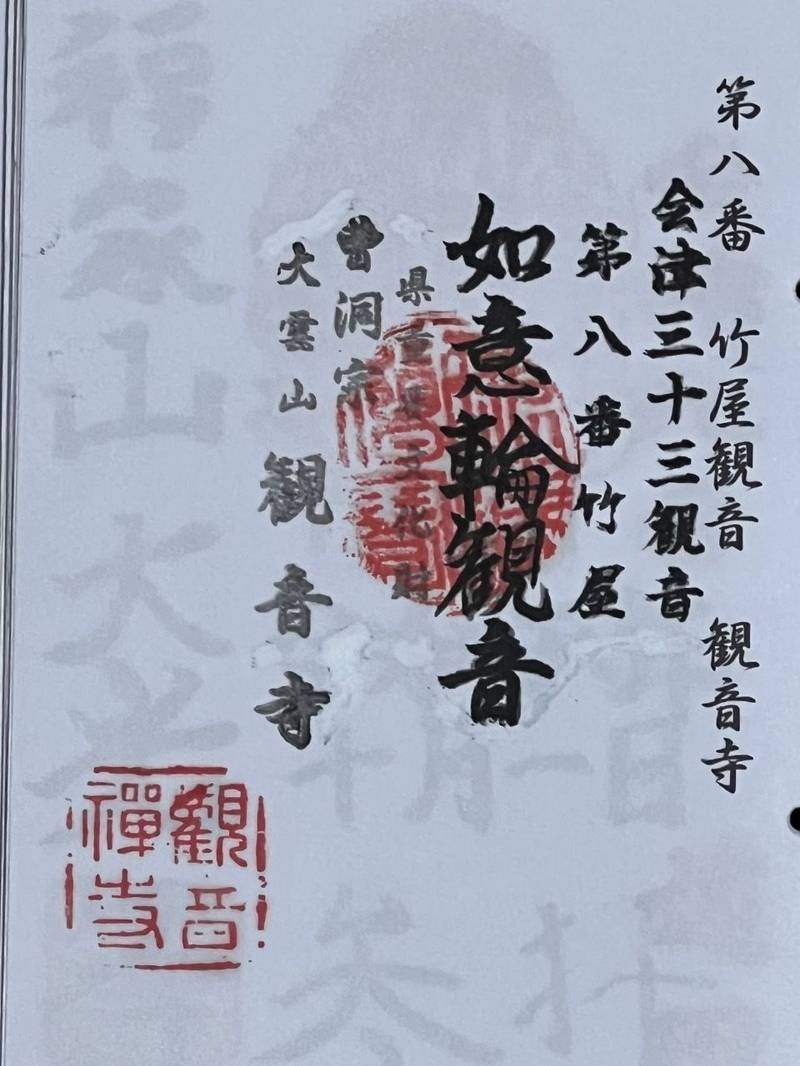 第八番 竹屋観音 観音寺
会津三十三観音
第八番竹屋
如意輪観音
県重要文化財
曹洞宗
大雲山 観音寺
觀音禪寺